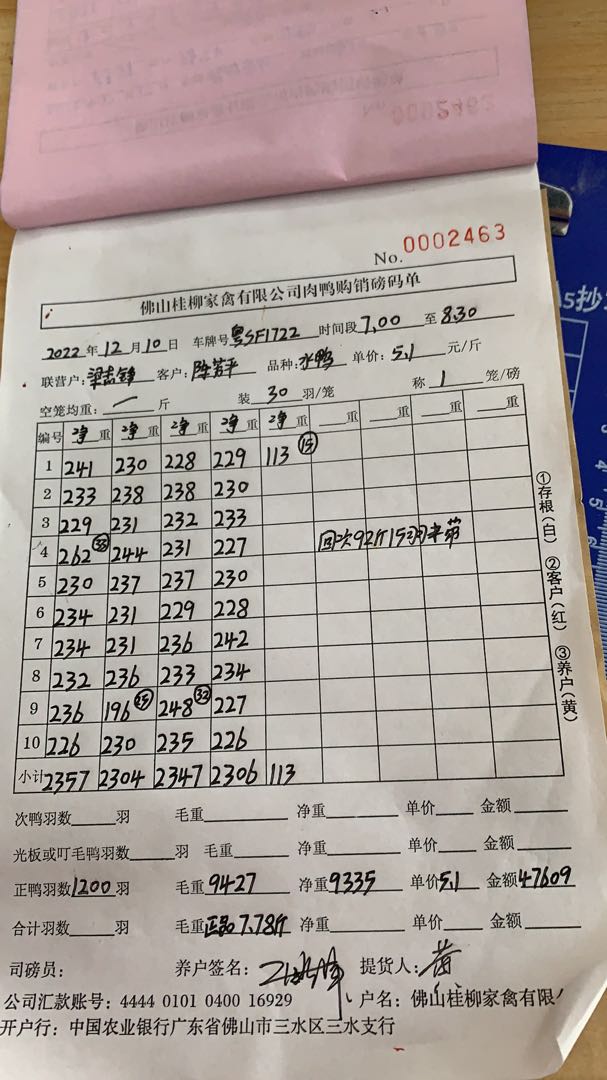 0002462
No. 0002463
佛山桂柳家禽有限公司肉鸭购销磅码单
2022年12月10日 车牌号粤SF1722 时间段7,00至8.30
联营户: 客户: 品种:水鸭 单价:5.1元/斤
空笼均重:一斤 装30羽/笼 称1笼/磅
编号 净重 净重 净重 净重 净重 重 重 重 重
1 241 230 228 229 113 ⑮
2 233 238 238 230
3 229 231 232 233
4 262 ㉝ 244 231 227 回次92斤15羽半
5 230 237 237 230
6 234 231 229 228
7 234 231 236 242
8 232 236 233 234
9 236 196 ㉕ 248 ㉜ 227
10 226 230 235 226
小计 2357 2304 2347 2306 113
①存根(白) ②客户(红) ③养户(黄)
次鸭羽数 羽 毛重 净重 单价 金额
光板或叮毛鸭羽数 羽 毛重 净重 单价 金额
正鸭羽数1200羽 毛重9427 净重9335 单价5.1 金额47609
合计羽数 羽 毛重 7.78斤 净重 单价 金额
司磅员: 养户签名: 提货人:
公司汇款账号: 4444 0101 0400 16929 户名: 佛山桂柳家禽有限
开户行: 中国农业银行广东省佛山市三水区三水支行
A5抄